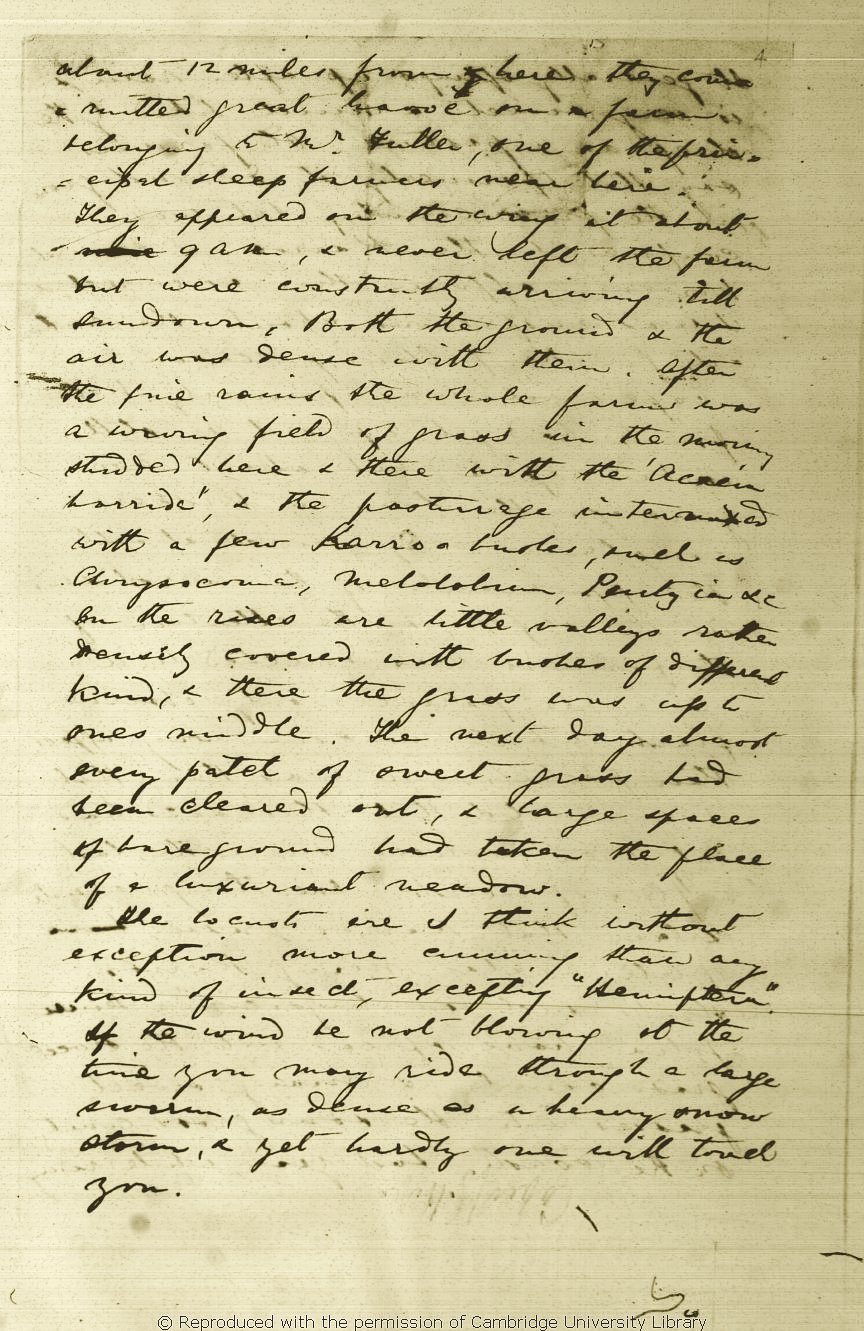 4
about 12 miles from here. they com=
=mitted great havoc on a farm
belonging to Mr. Fuller, one of the prin=
=cipal sheep farmers near here.
They appeared on the wing at about
9 am, & never left the farm
but were constantly arriving till
sundown, Both the ground & the
air was dense with them. After
the fine rains the whole farm was
a waving field of grass in the morning
studded here & there with the 'Acacia
horrida', & the pasturage intermixed
with a few Karroo bushes, such as
Chrysocoma, Melolobium, Pentzia &c
On the rises are little valleys rather
densely covered with bushes of different
kind, & there the grass was up to
ones middle. The next day almost
every patch of sweet grass had
been cleared out, & large spaces
of bare ground had taken the place
of a luxuriant meadow.
The locusts are I think without
exception more cunning than any
kind of insect, excepting "Hemiptera".
If the wind be not blowing at the
time you may ride through a large
swarm, as dense as a heavy snow
storm, & yet hardly one will touch
you.
© Reproduced with the permission of Cambridge University Library